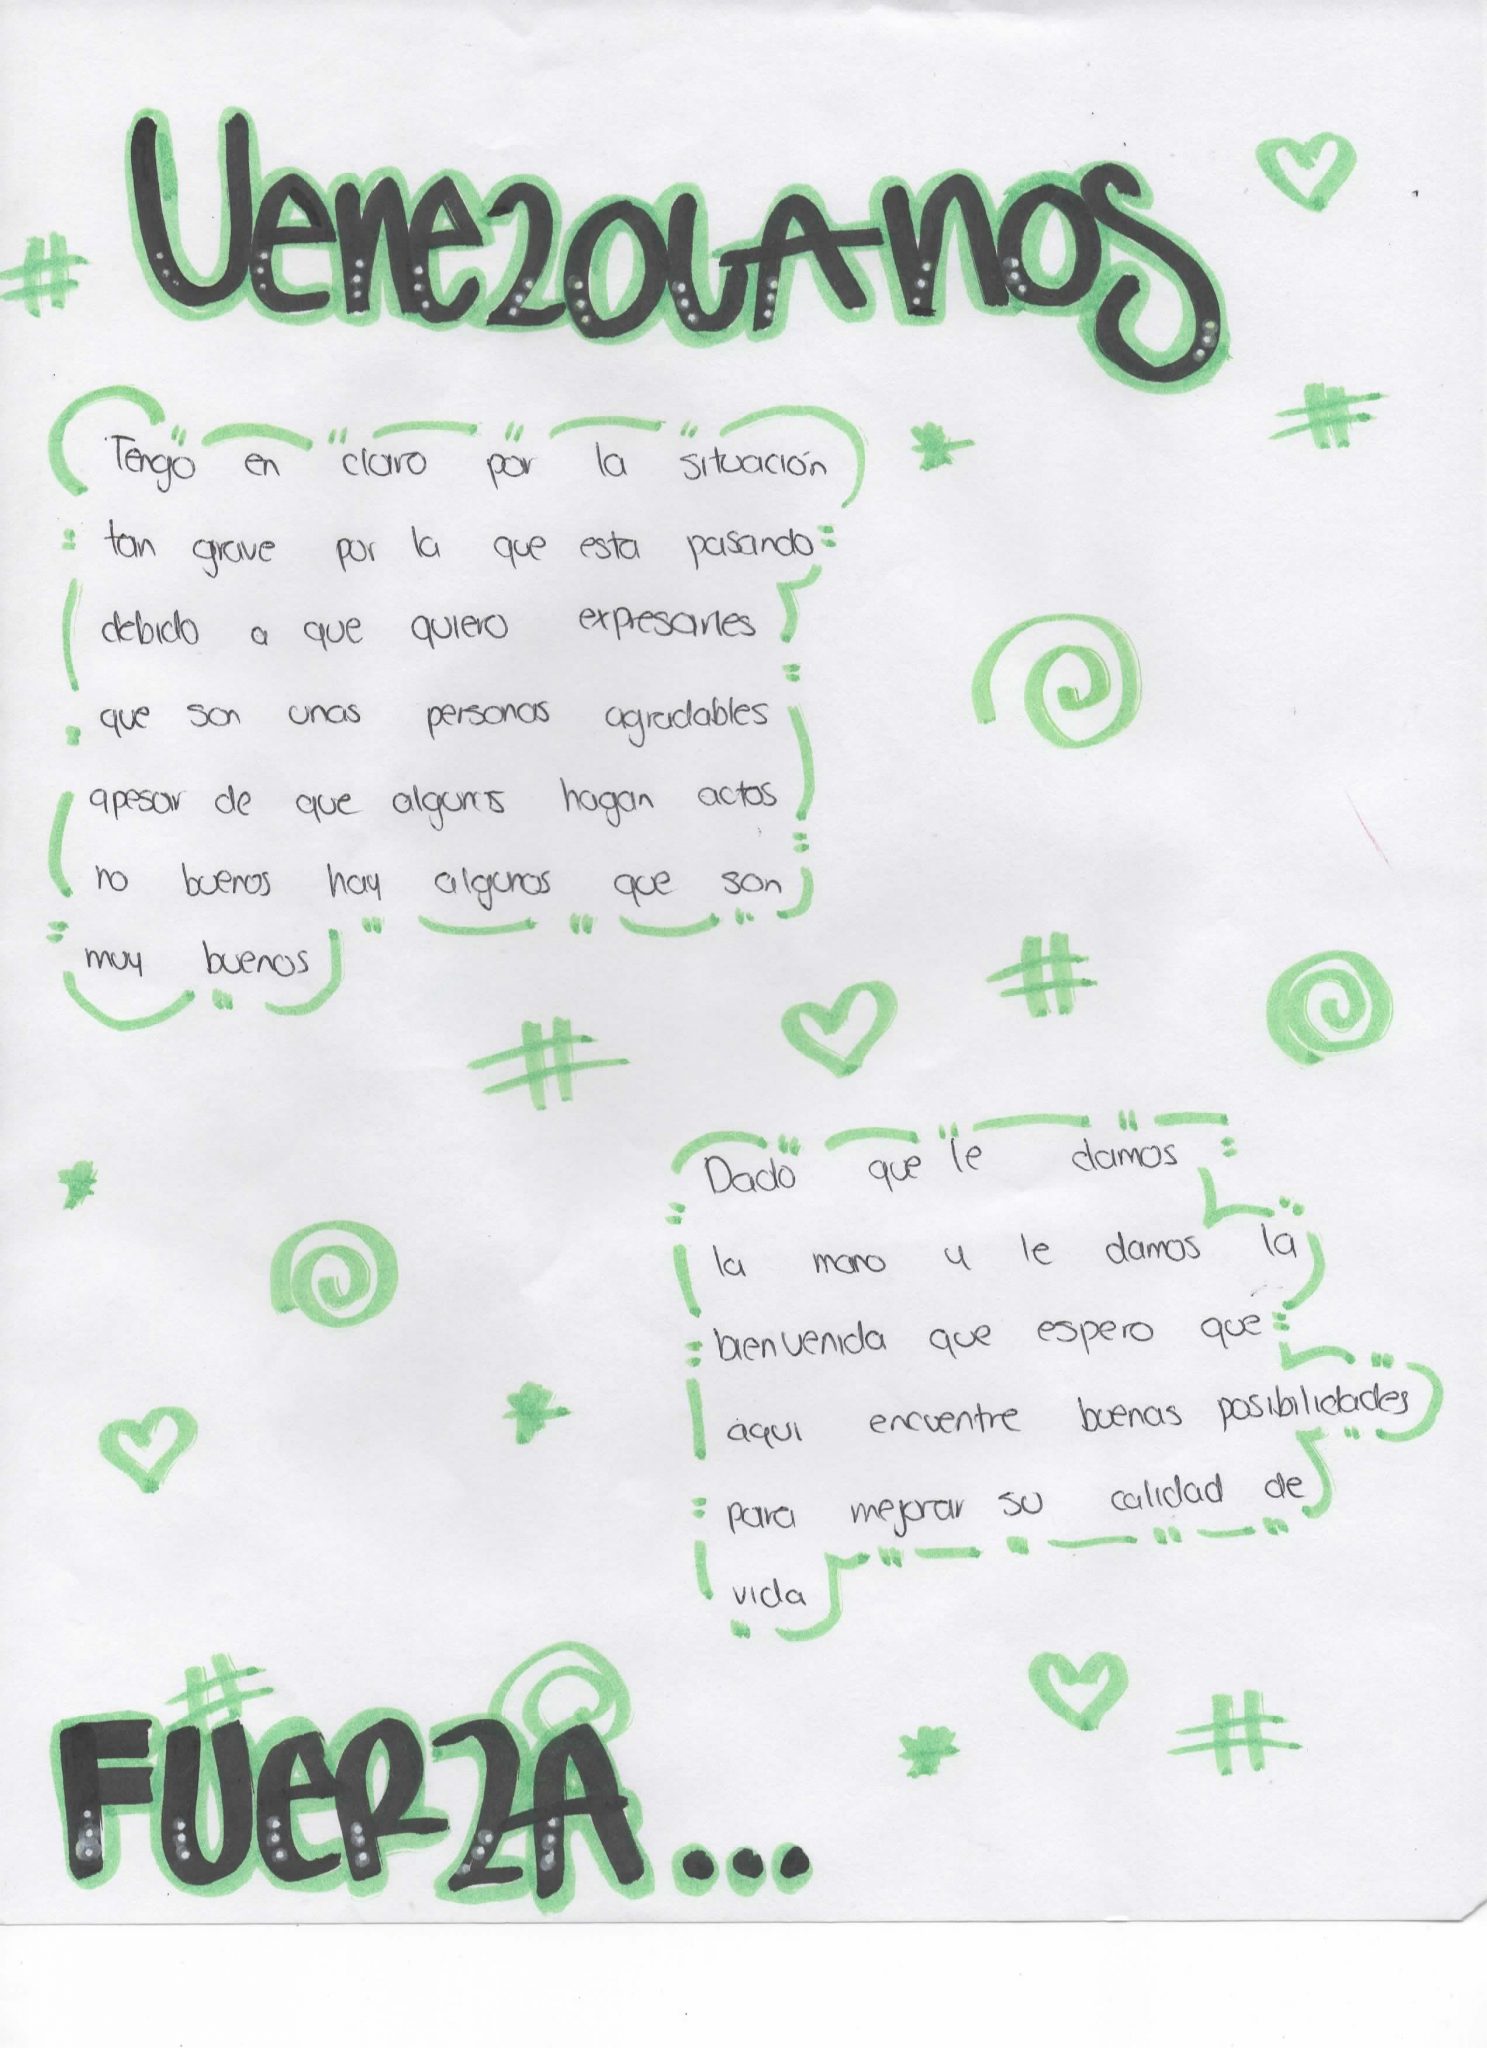 VenezolAnos
Tengo en claro por la situación
tan grave por la que esta pasando
debido a que quiero expresarles
que son unas personas agradables
apesar de que algunos hagan actos
no buenos hay algunos que son
muy buenos
Dado que le damos
la mano y le damos la
bienvenida que espero que
aqui encuentre buenas posibilidades
para mejorar su calidad de
vida
FUerzA...